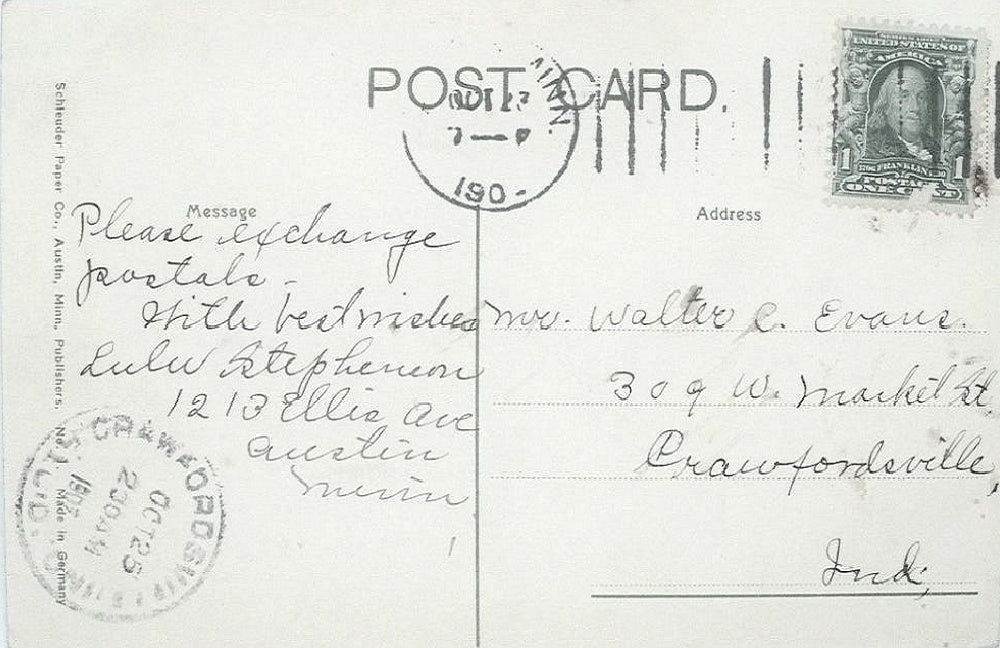 POST CARD.
MINN.
OCT 23
7 — P
190-
SERIES 1902
UNITED STATES OF
AMERICA
1 1
1706 FRANKLIN 1790
POSTAGE
ONE CENT
Message
Please exchange
postals -
With best wishes
Lulu Stephenson
1213 Ellis Ave
Austin
Minn
Address
Mr. Walter C. Evans.
309 W. Market St,
Crawfordsville,
Ind,
Schleuder Paper Co., Austin, Minn, Publishers. No. Made in Germany
CRAWFORDSVILLE, IND.
OCT 25
230 AM